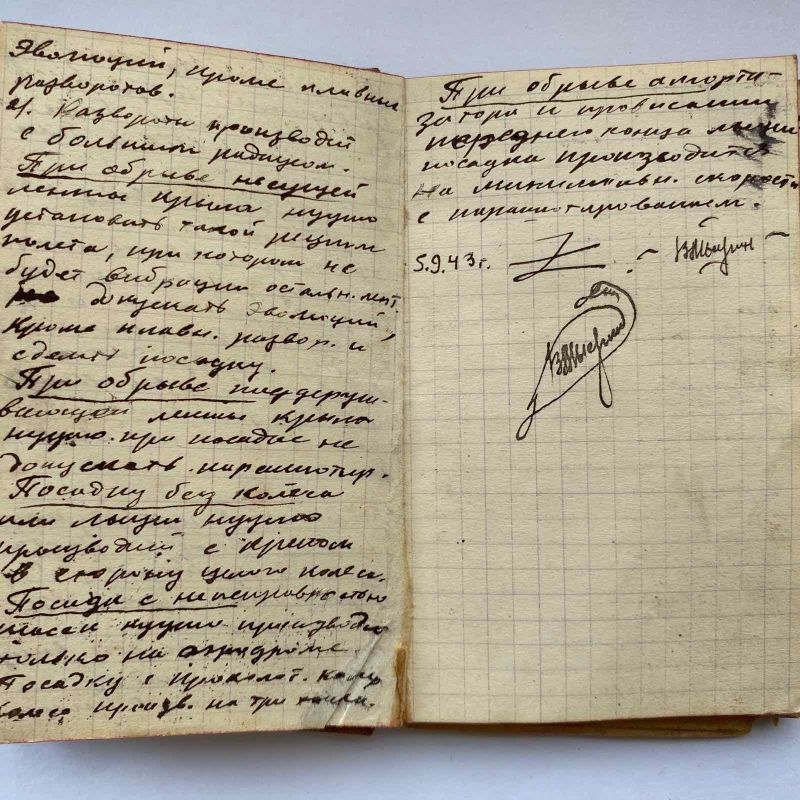 эволюций, кроме плавных
разворотов.
4. Развороты производить
с большим радиусом.
При обрыве несущей
ленты крыла нужно
установить такой режим
полета, при котором не
будет вибрации остальн. лент.
допускать эволюций,
кроме плавн. разворот. и
сделать посадку.
При обрыве поддержи-
вающей ленты крыла
нужно при посадке не
допускать парашютир.
Посадку без колеса
или лыжи нужно
производить с креном
в сторону целого колеса.
Посадк с неисправностью
шасси нужно производ
только на аэродроме.
Посадку с проколот. каме
колеса произв. на три точки.
При обрыве аморти-
затора и провисании
переднего конца лыжи
посадка производится
на минимальн. скорости
с парашютированием.
5.9.43г.